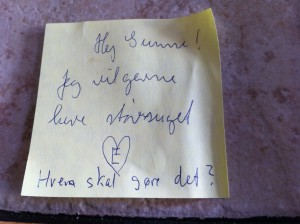 Hej
Jeg vil gerne
have støvsuget
E
Hvem skal gøre det?